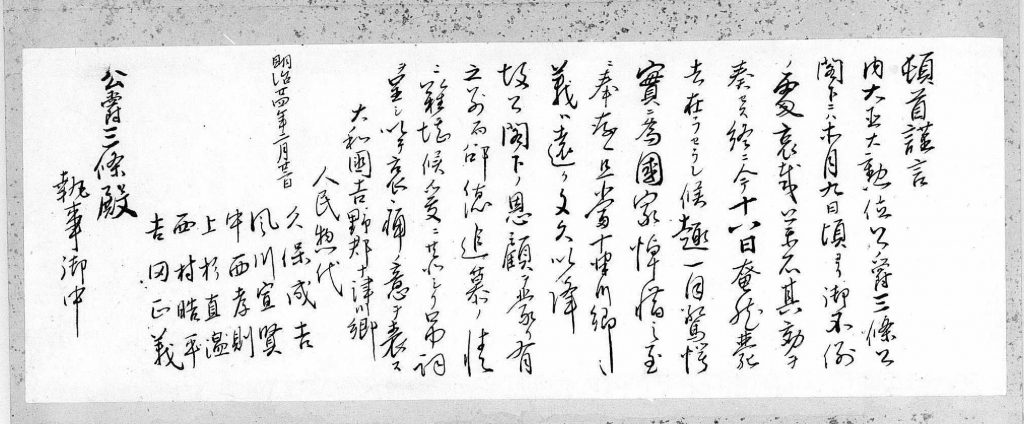 頓首謹言
内大臣大勲位公爵三條公
閣下ニハ本月九日頃ヨリ御不例
ノ處哀哉薬石其効ヲ
奏セス終ニ今十八日奄然薨
去在ラセラレ候趣一同驚愕
實ニ為國家悼惜之至
ニ奉存候且當十津川郷ニ
義ハ遠ク文久以降
故公閣下ノ恩顧ヲ蒙ル有
之列而御徳追慕ノ情
ニ難堪候爰ニ共ニ弔詞
ヲ呈シ以テ哀悼ノ意ヲ表ス
大和國吉野郡十津川郷
人民惣代
明治廿四年二月廿二日
久保成吉
風川宣賢
中西孝則
上杉直温
西村皓平
吉田正義
公爵三條殿
執事御中